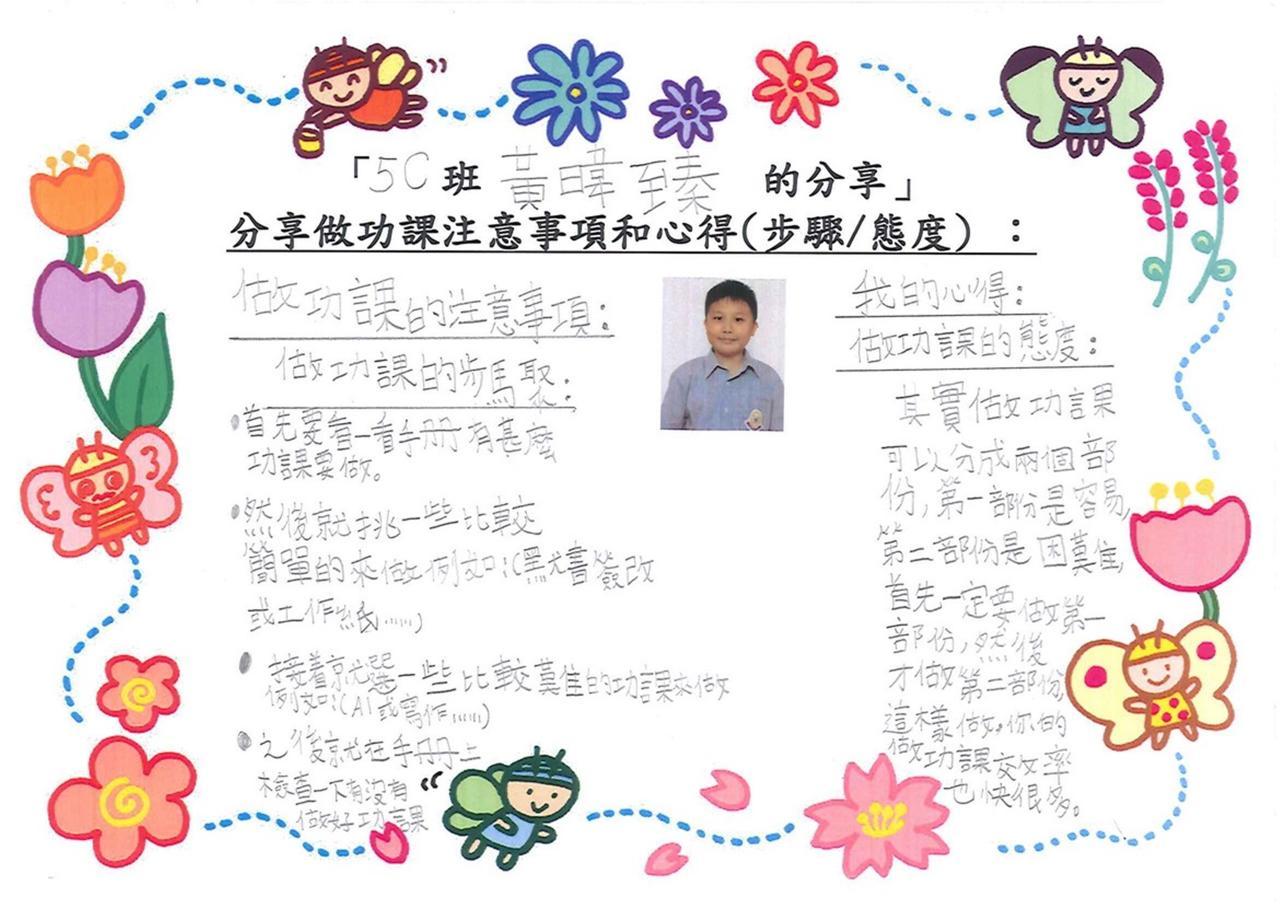 「5C班 黃暐臻 的分享」
分享做功課注意事項和心得(步驟/態度)：
做功課的注意事項：
做功課的步驟：
•首先要看一看手冊有甚麼
功課要做。
•然後就挑一些比較
簡單的來做例如：(默書簽改
或工作紙……)
•接着就選一些比較難的功課來做
例如：(AI或寫作……)
•之後就在手冊上
檢查一下有沒有
做好功課
我的心得：
做功課的態度：
其實做功課
可以分成兩個部
份，第一部份是容易，
第二部份是困難，
首先一定要做第一
部份，然後
才做第二部份，
這樣做，你的
做功課交效率
也快很多。